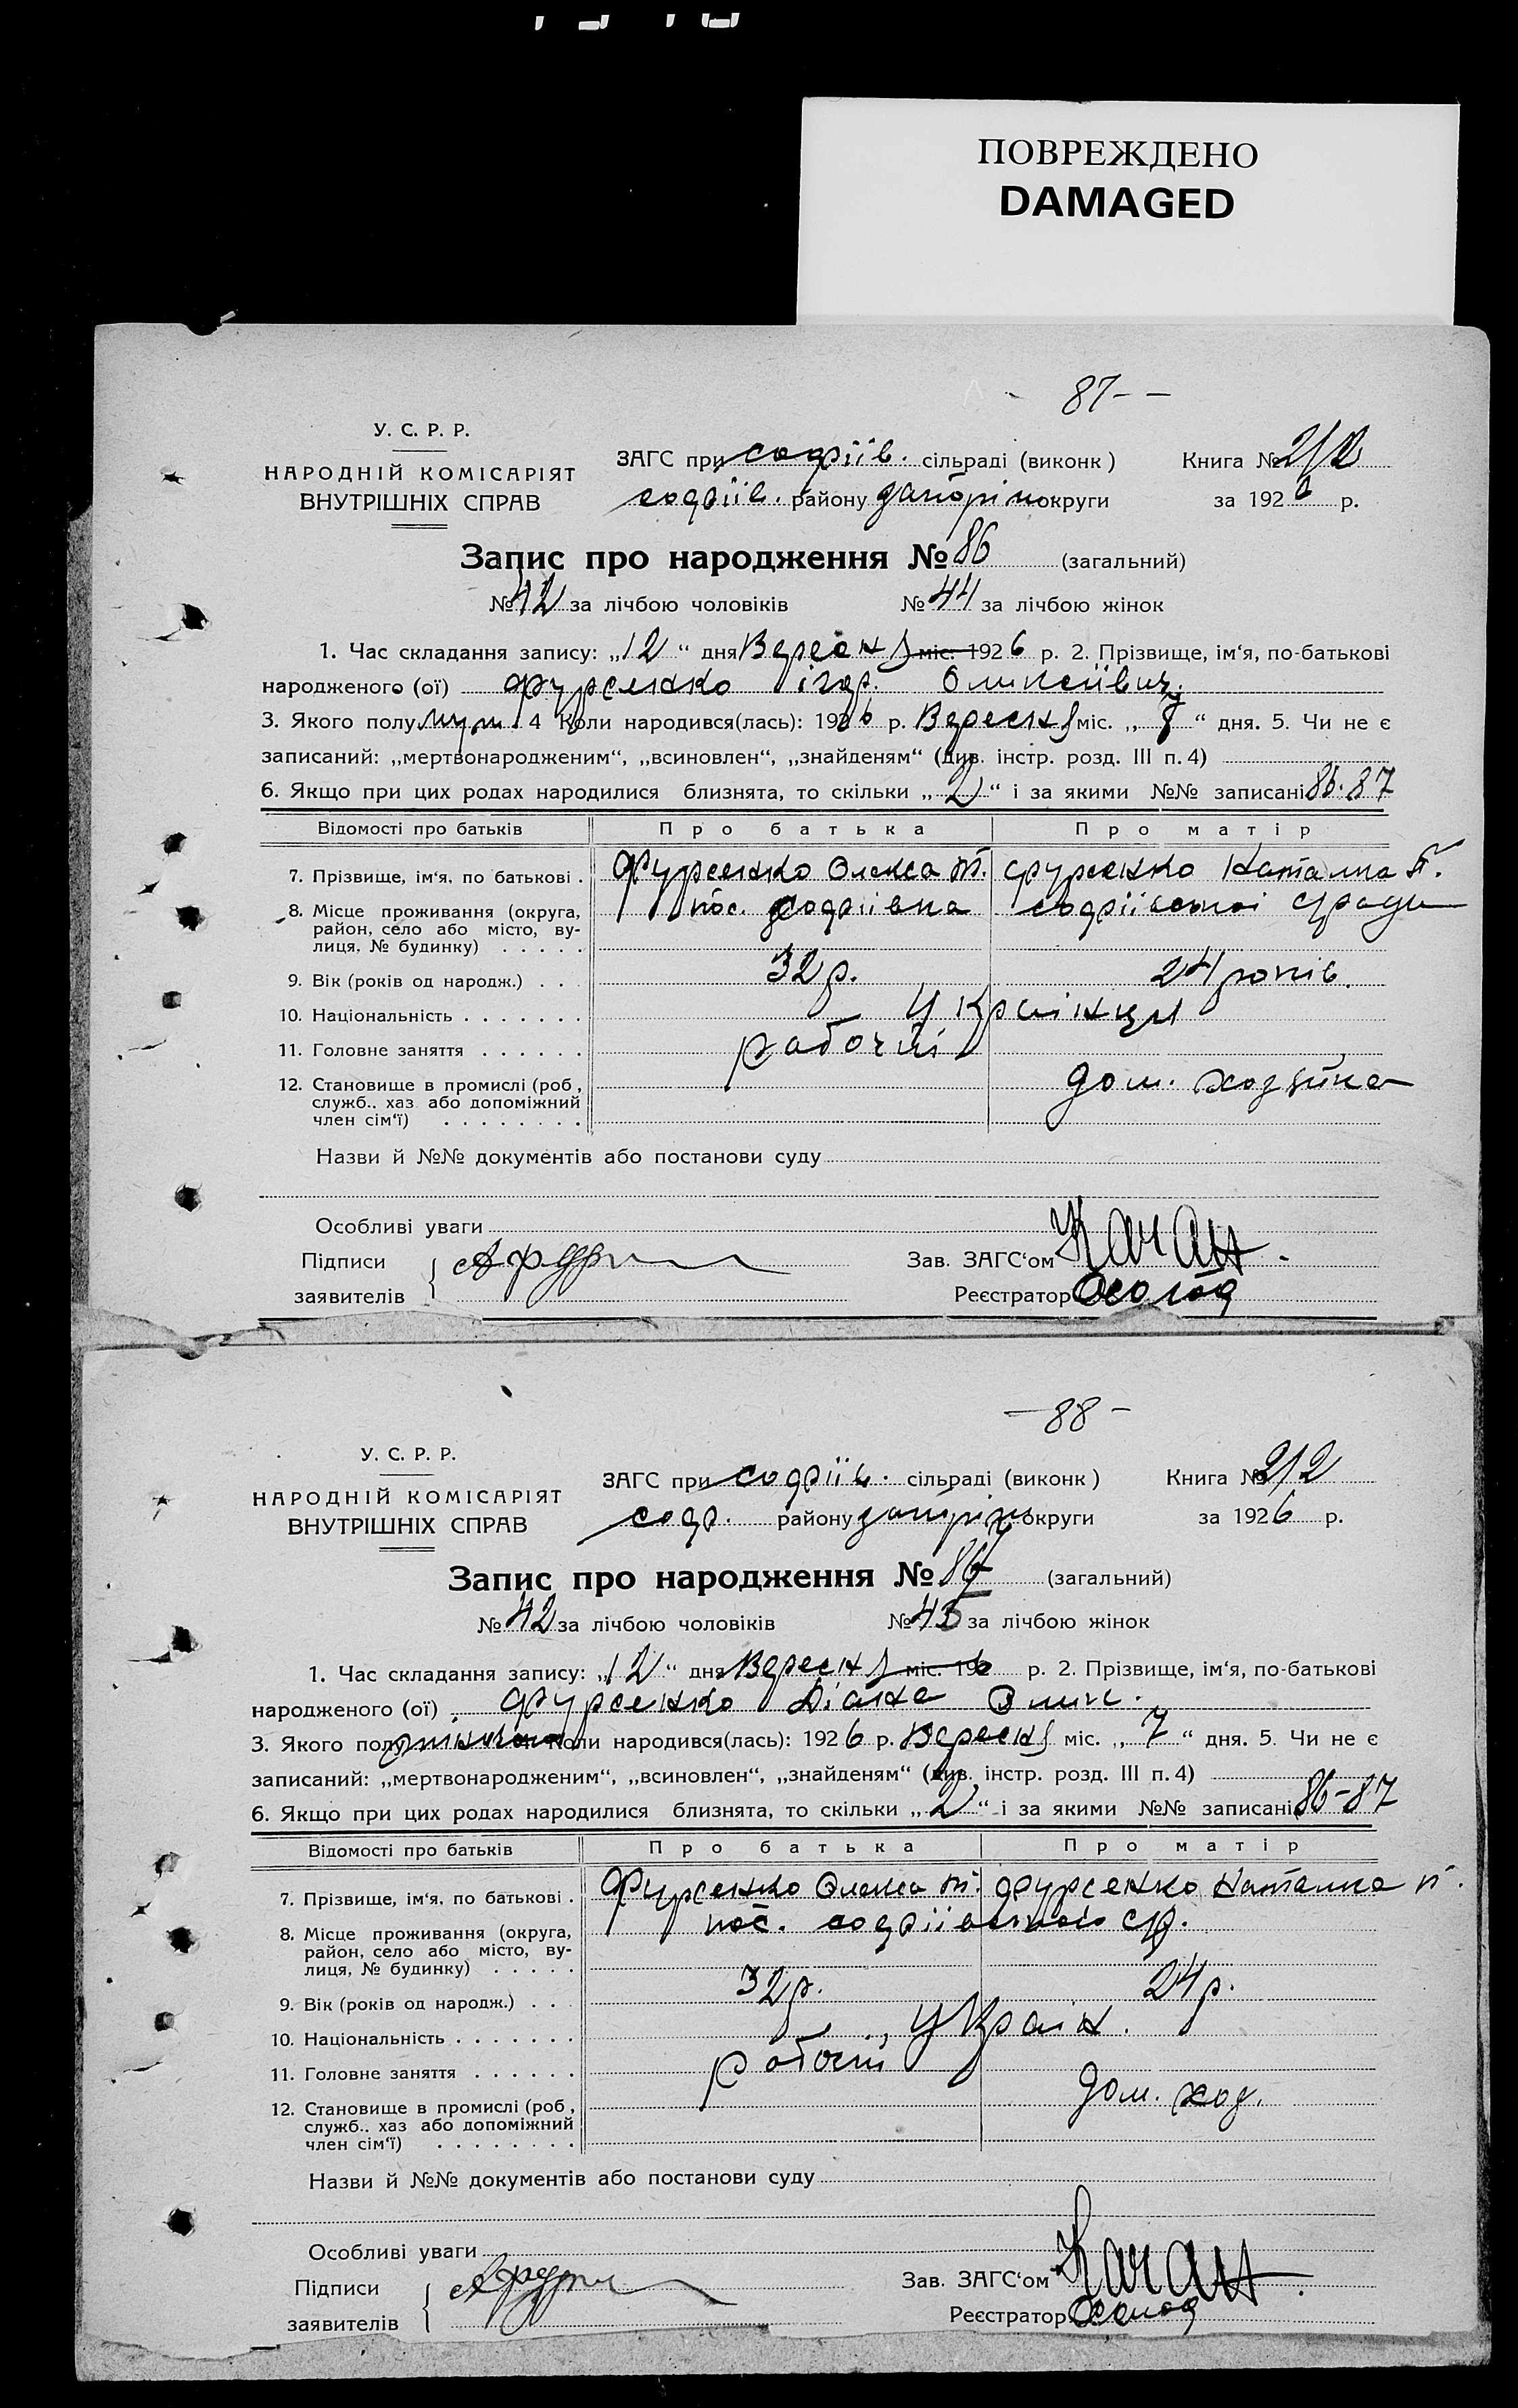 ПОВРЕЖДЕНО
DAMAGED
87 - -
У. С. Р. Р.
НАРОДНІЙ КОМІСАРІЯТ
ВНУТРІШНІХ СПРАВ
ЗАГС при софіїв. сільраді (виконк)
софіїв. району запоріж округи
Книга № 2/2
за 1926 р.
Запис про народження № 86 (загальний)
№ 42 за лічбою чоловіків № 44 за лічбою жінок
1. Час складання запису: „12“ дня Вересня міс. 1926 р. 2. Прізвище, ім‘я, по-батькові
народженого (ої) Фурсенко ігор.
3. Якого полу муж. 4 Коли народився(лась): 1926 р. Вересня міс. „ “ дня. 5. Чи не є
записаний: „мертвонародженим“, „всиновлен“, „знайденям“ (див. інстр. розд. III п. 4)
6. Якщо при цих родах народилися близнята, то скільки „2“ і за якими №№ записані 86.87
Відомості про батьків Про батька Про матір
7. Прізвище, ім‘я, по батькові . Фурсенко Олекса Т. Фурсенко Наталка П.
8. Місце проживання (округа, пос. Софіївка софіївської с/ради
район, село або місто, ву-
лиця, № будинку) . . . . .
9. Вік (років од народж.) . . . 32 р. 24 років.
10. Національність . . . . . . . Українци
11. Головне заняття . . . . . . рабочій
12. Становище в промислі (роб., дом. хозяйка
служб.. хаз або допоміжний
член сім‘ї) . . . . . . . .
Назви й №№ документів або постанови суду
Особливі уваги
Підписи
заявителів
Зав. ЗАГС‘ом Качан
Реєстратор Холод
- 88 -
У. С. Р. Р.
НАРОДНІЙ КОМІСАРІЯТ
ВНУТРІШНІХ СПРАВ
ЗАГС при софіїв. сільраді (виконк)
соф. району запоріж округи
Книга № 2/2
за 1926 р.
Запис про народження № 87 (загальний)
№ 42 за лічбою чоловіків № 45 за лічбою жінок
1. Час складання запису: „12“ дня Вересня міс. 1926 р. 2. Прізвище, ім‘я, по-батькові
народженого (ої) Фурсенко Діана Олик.
3. Якого полу жіноча 4 Коли народився(лась): 1926 р. Вересня міс. „7“ дня. 5. Чи не є
записаний: „мертвонародженим“, „всиновлен“, „знайденям“ (див. інстр. розд. III п. 4)
6. Якщо при цих родах народилися близнята, то скільки „2“ і за якими №№ записані 86-87
Відомості про батьків Про батька Про матір
7. Прізвище, ім‘я, по батькові . Фурсенко Олекса Т. Фурсенко Наталка П.
8. Місце проживання (округа, пос. софіївської с/р.
район, село або місто, ву-
лиця, № будинку) . . . . .
9. Вік (років од народж.) . . . 32 р. 24 р.
10. Національність . . . . . . . Україн.
11. Головне заняття . . . . . . рабочій
12. Становище в промислі (роб., дом. хоз.
служб.. хаз або допоміжний
член сім‘ї) . . . . . . . .
Назви й №№ документів або постанови суду
Особливі уваги
Підписи
заявителів
Зав. ЗАГС‘ом Качан.
Реєстратор Холод